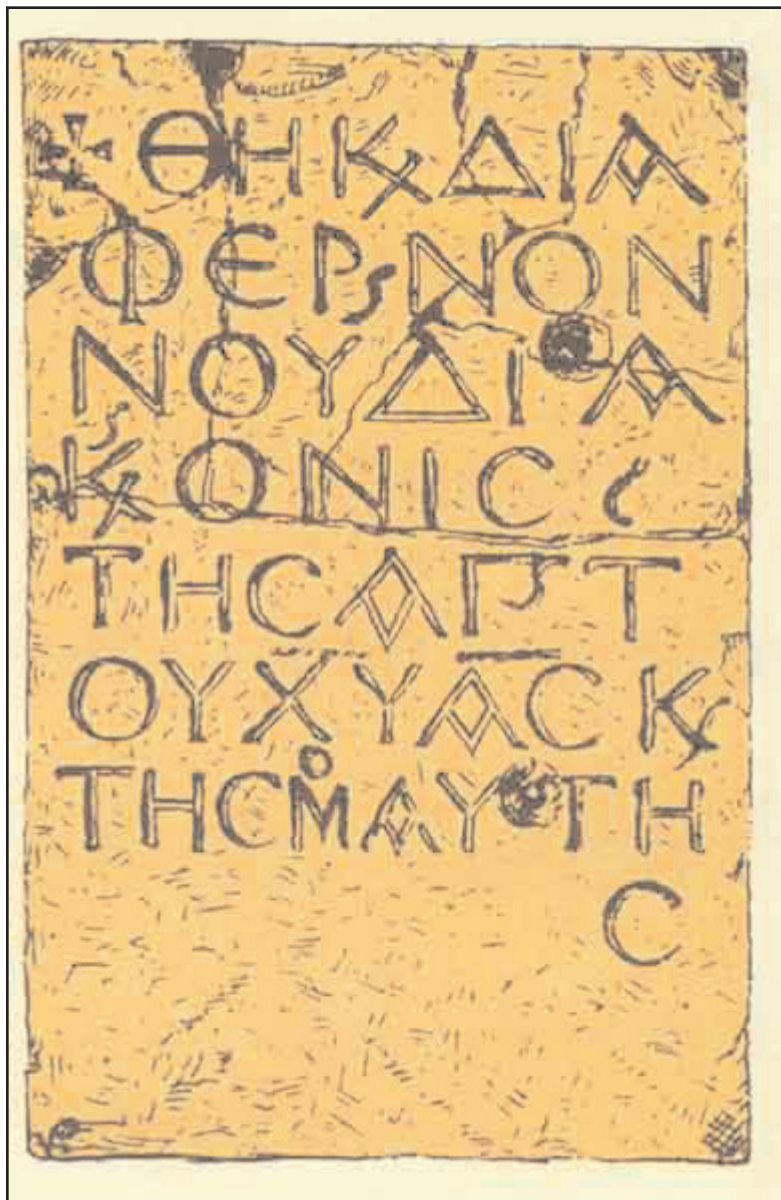 ✝ ΘΗΚΔΙΑ
ΦΕΡSΝΟΝ
ΝΟΥΔΙΑ
ΚSΟΝΙCS
ΤΗCΑΓSΤ
ΟΥΧΥΑCΚ
ΤΗCΜΟΑΥΤΗ
C